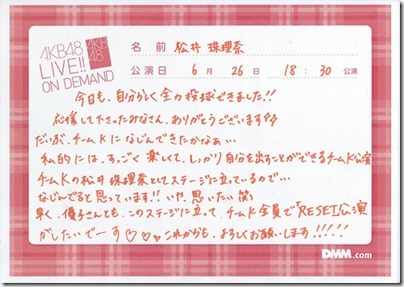 AKB48
LIVE!!
ON DEMAND
AKB
48
名前 松井 珠理奈
公演日 6月 26日 18:30 公演
今日も、自分らしく全力投球できました!!
応援して下さったみなさん、ありがとうございます
だいぶ、チームKになじんできたかなぁ…
私的には、すっごく楽しくて、しっかり自分を出すことができるチームK公演
チームKの松井珠理奈としてステージに立っているので…
なじんでると思っています!! いや、思いたい 笑
早く、優子さんとも、このステージに立って、チームK全員で「RESET」公演
がしたいでーす♡♡ これからも、よろしくお願いします!!!!!
DMM.com